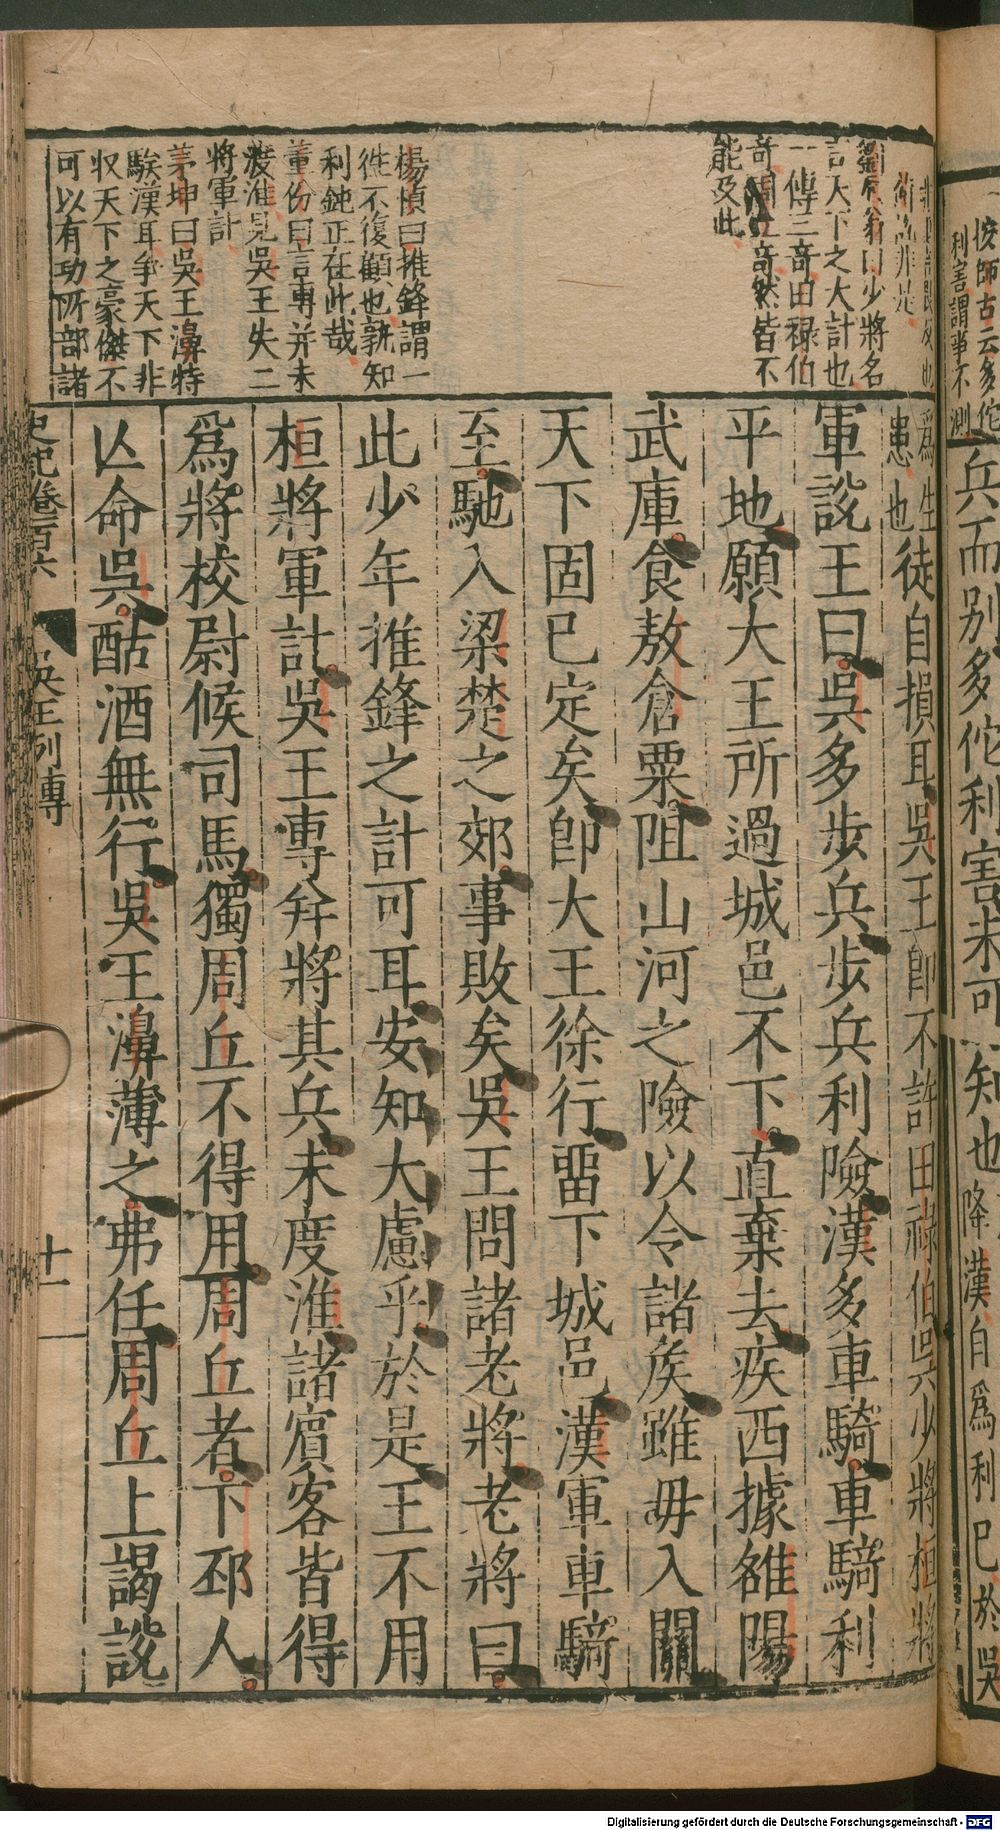 俊師古云多佗
利害謂事不測
兵而別多佗利害未可知也降漢自爲利已於吳
爲生患也徒自損耳吳王卽不許田祿伯吳少將桓將
軍說王曰吳多步兵步兵利險漢多車騎車騎利
平地願大王所過城邑不下直棄去疾西據雒陽
武庫食敖倉粟阻山河之險以令諸矦雖毋入關
天下固已定矣卽大王徐行畱下城邑漢軍車騎
至馳入梁楚之郊事敗矣吳王問諸老將老將曰
此少年推鋒之計可耳安知大慮乎於是王不用
桓將軍計吳王專并將其兵未度淮諸賓客皆得
爲將校尉候司馬獨周丘不得用周丘者下邳人
亾命吳酤酒無行吳王濞薄之弗任周丘上謁說
史記卷百六
吳王列傳
十一
劉辰翁曰少將名
言天下之大計也
一傳三竒田祿伯
竒周丘竒然皆不
能及此
楊慎曰推鋒謂一
徃不復顧也孰知
利鈍正在此哉
董份曰言專并未
渡淮見吳王失二
將軍計
茅坤曰吳王濞特
騃漢耳爭天下非
収天下之豪傑不
可以有功所部諸
Digitalisierung gefördert durch die Deutsche Forschungsgemeinschaft - DFG